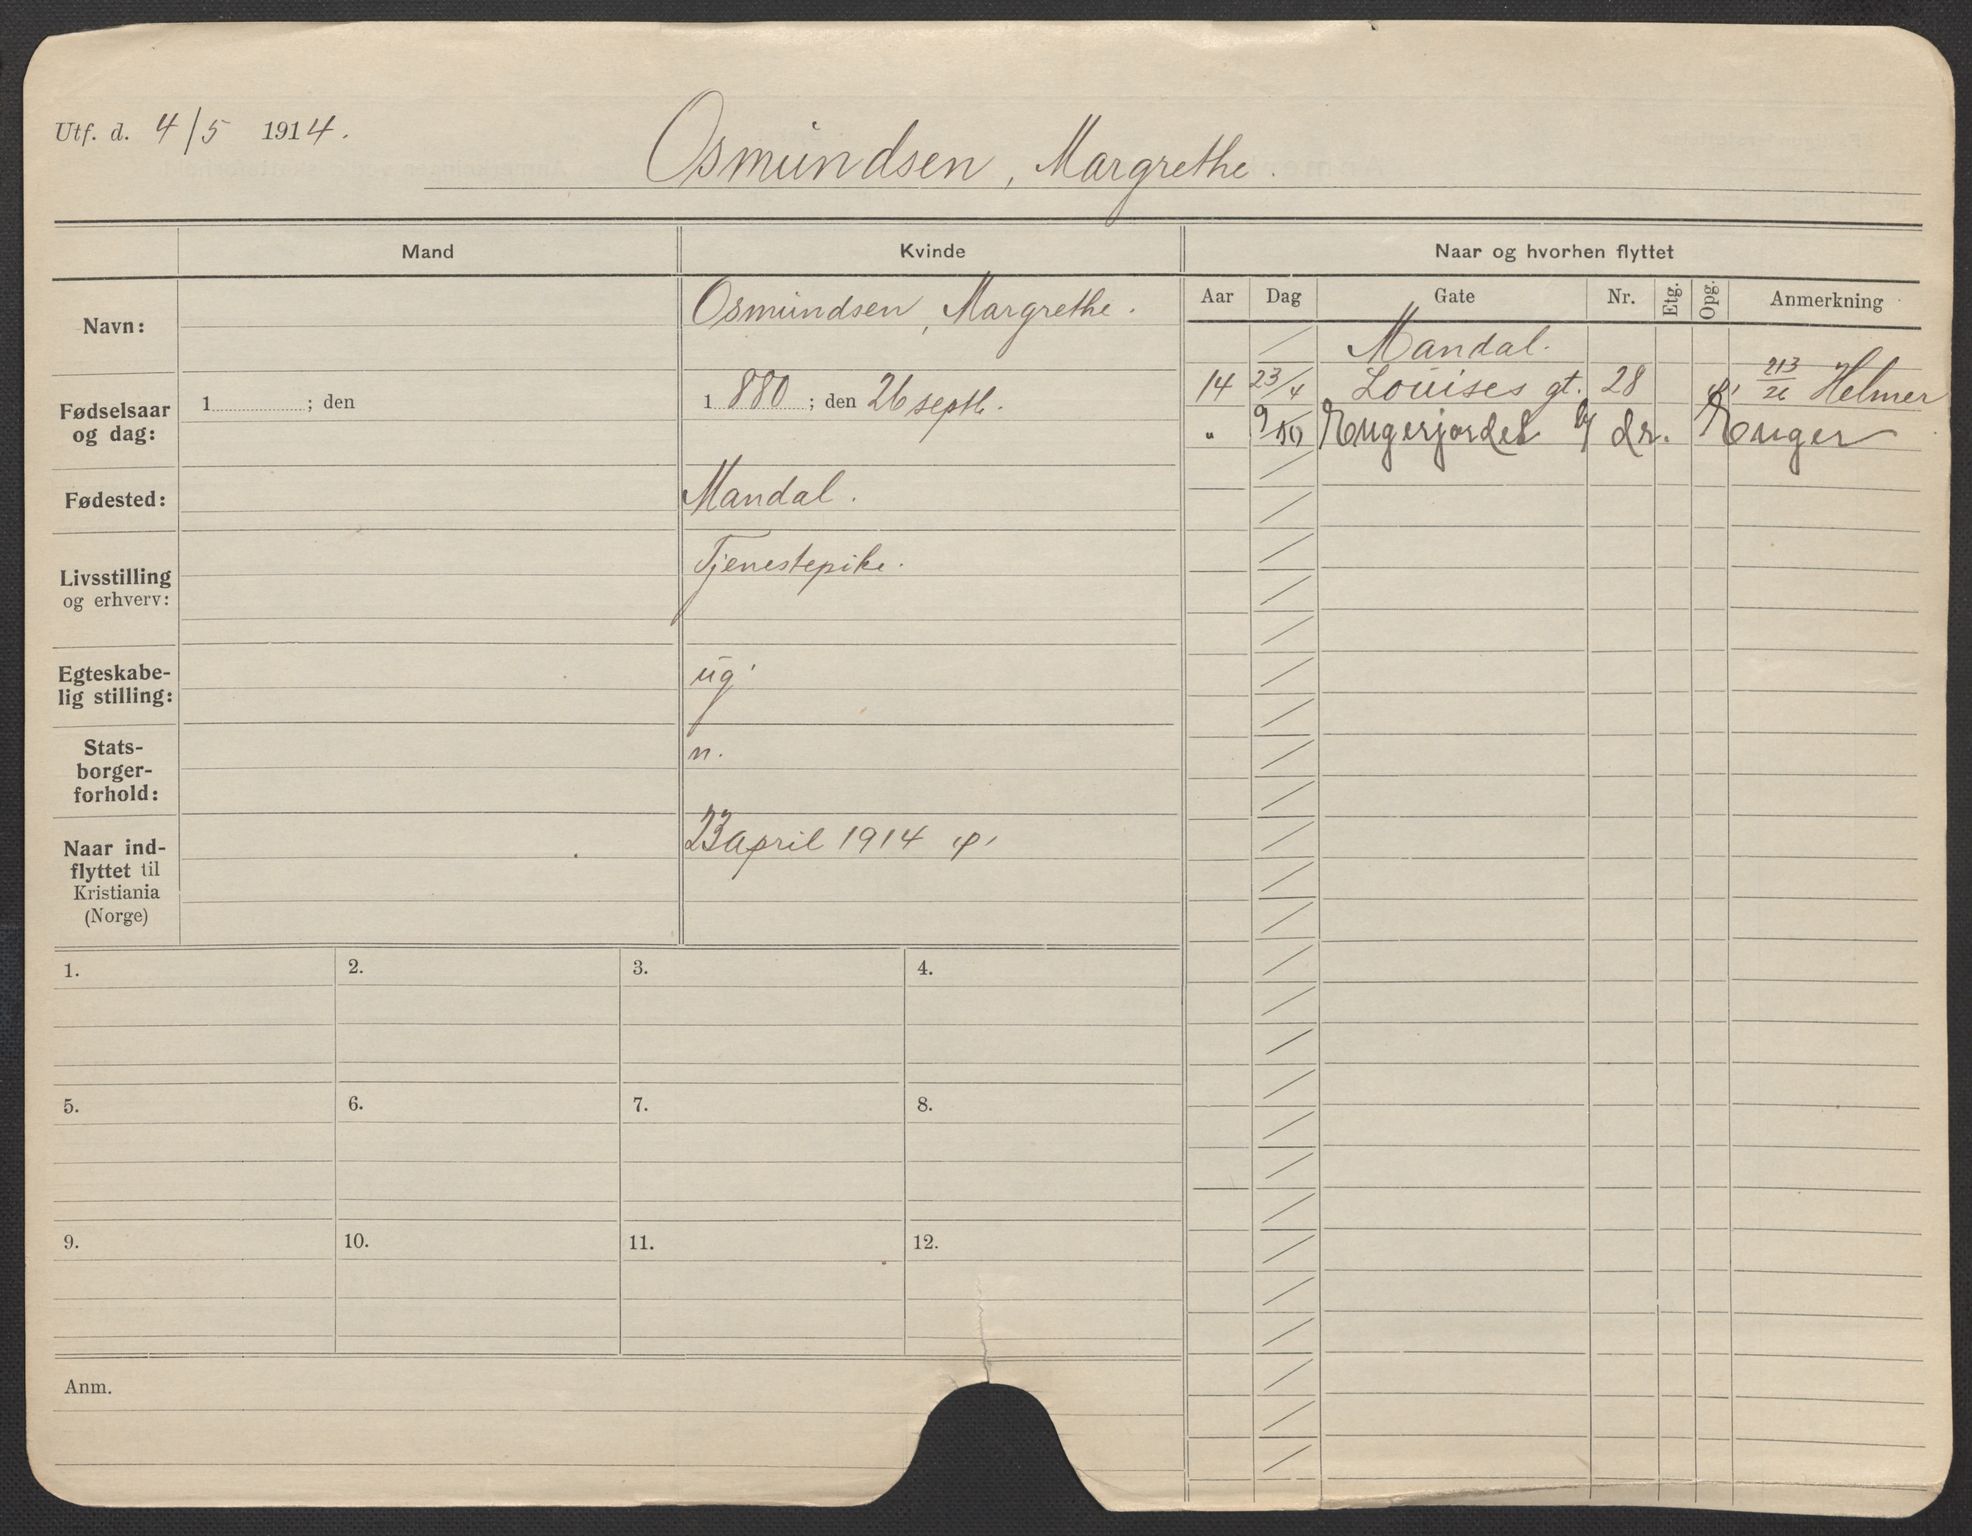 Utf. d. 4/5 1914.
Osmundsen, Margrethe.
Mand
Kvinde
Naar og hvorhen flyttet
Navn:
Osmundsen, Margrethe.
Fødselsaar
og dag:
1 ; den
1 880 ; den 26 septb.
Fødested:
Mandal.
Livsstilling
og erhverv:
Tjenestepike.
Egteskabe-
lig stilling:
ug
Stats-
borger-
forhold:
n.
Naar ind-
flyttet til
Kristiania
(Norge)
23 april 1914
Aar Dag Gate Nr. Etg. Opg. Anmerkning
Mandal.
14 23/4 Louises gt. 28 Helmer
" 9/10 Engerjordet dr. Enger
1. 2. 3. 4.
5. 6. 7. 8.
9. 10. 11. 12.
Anm.